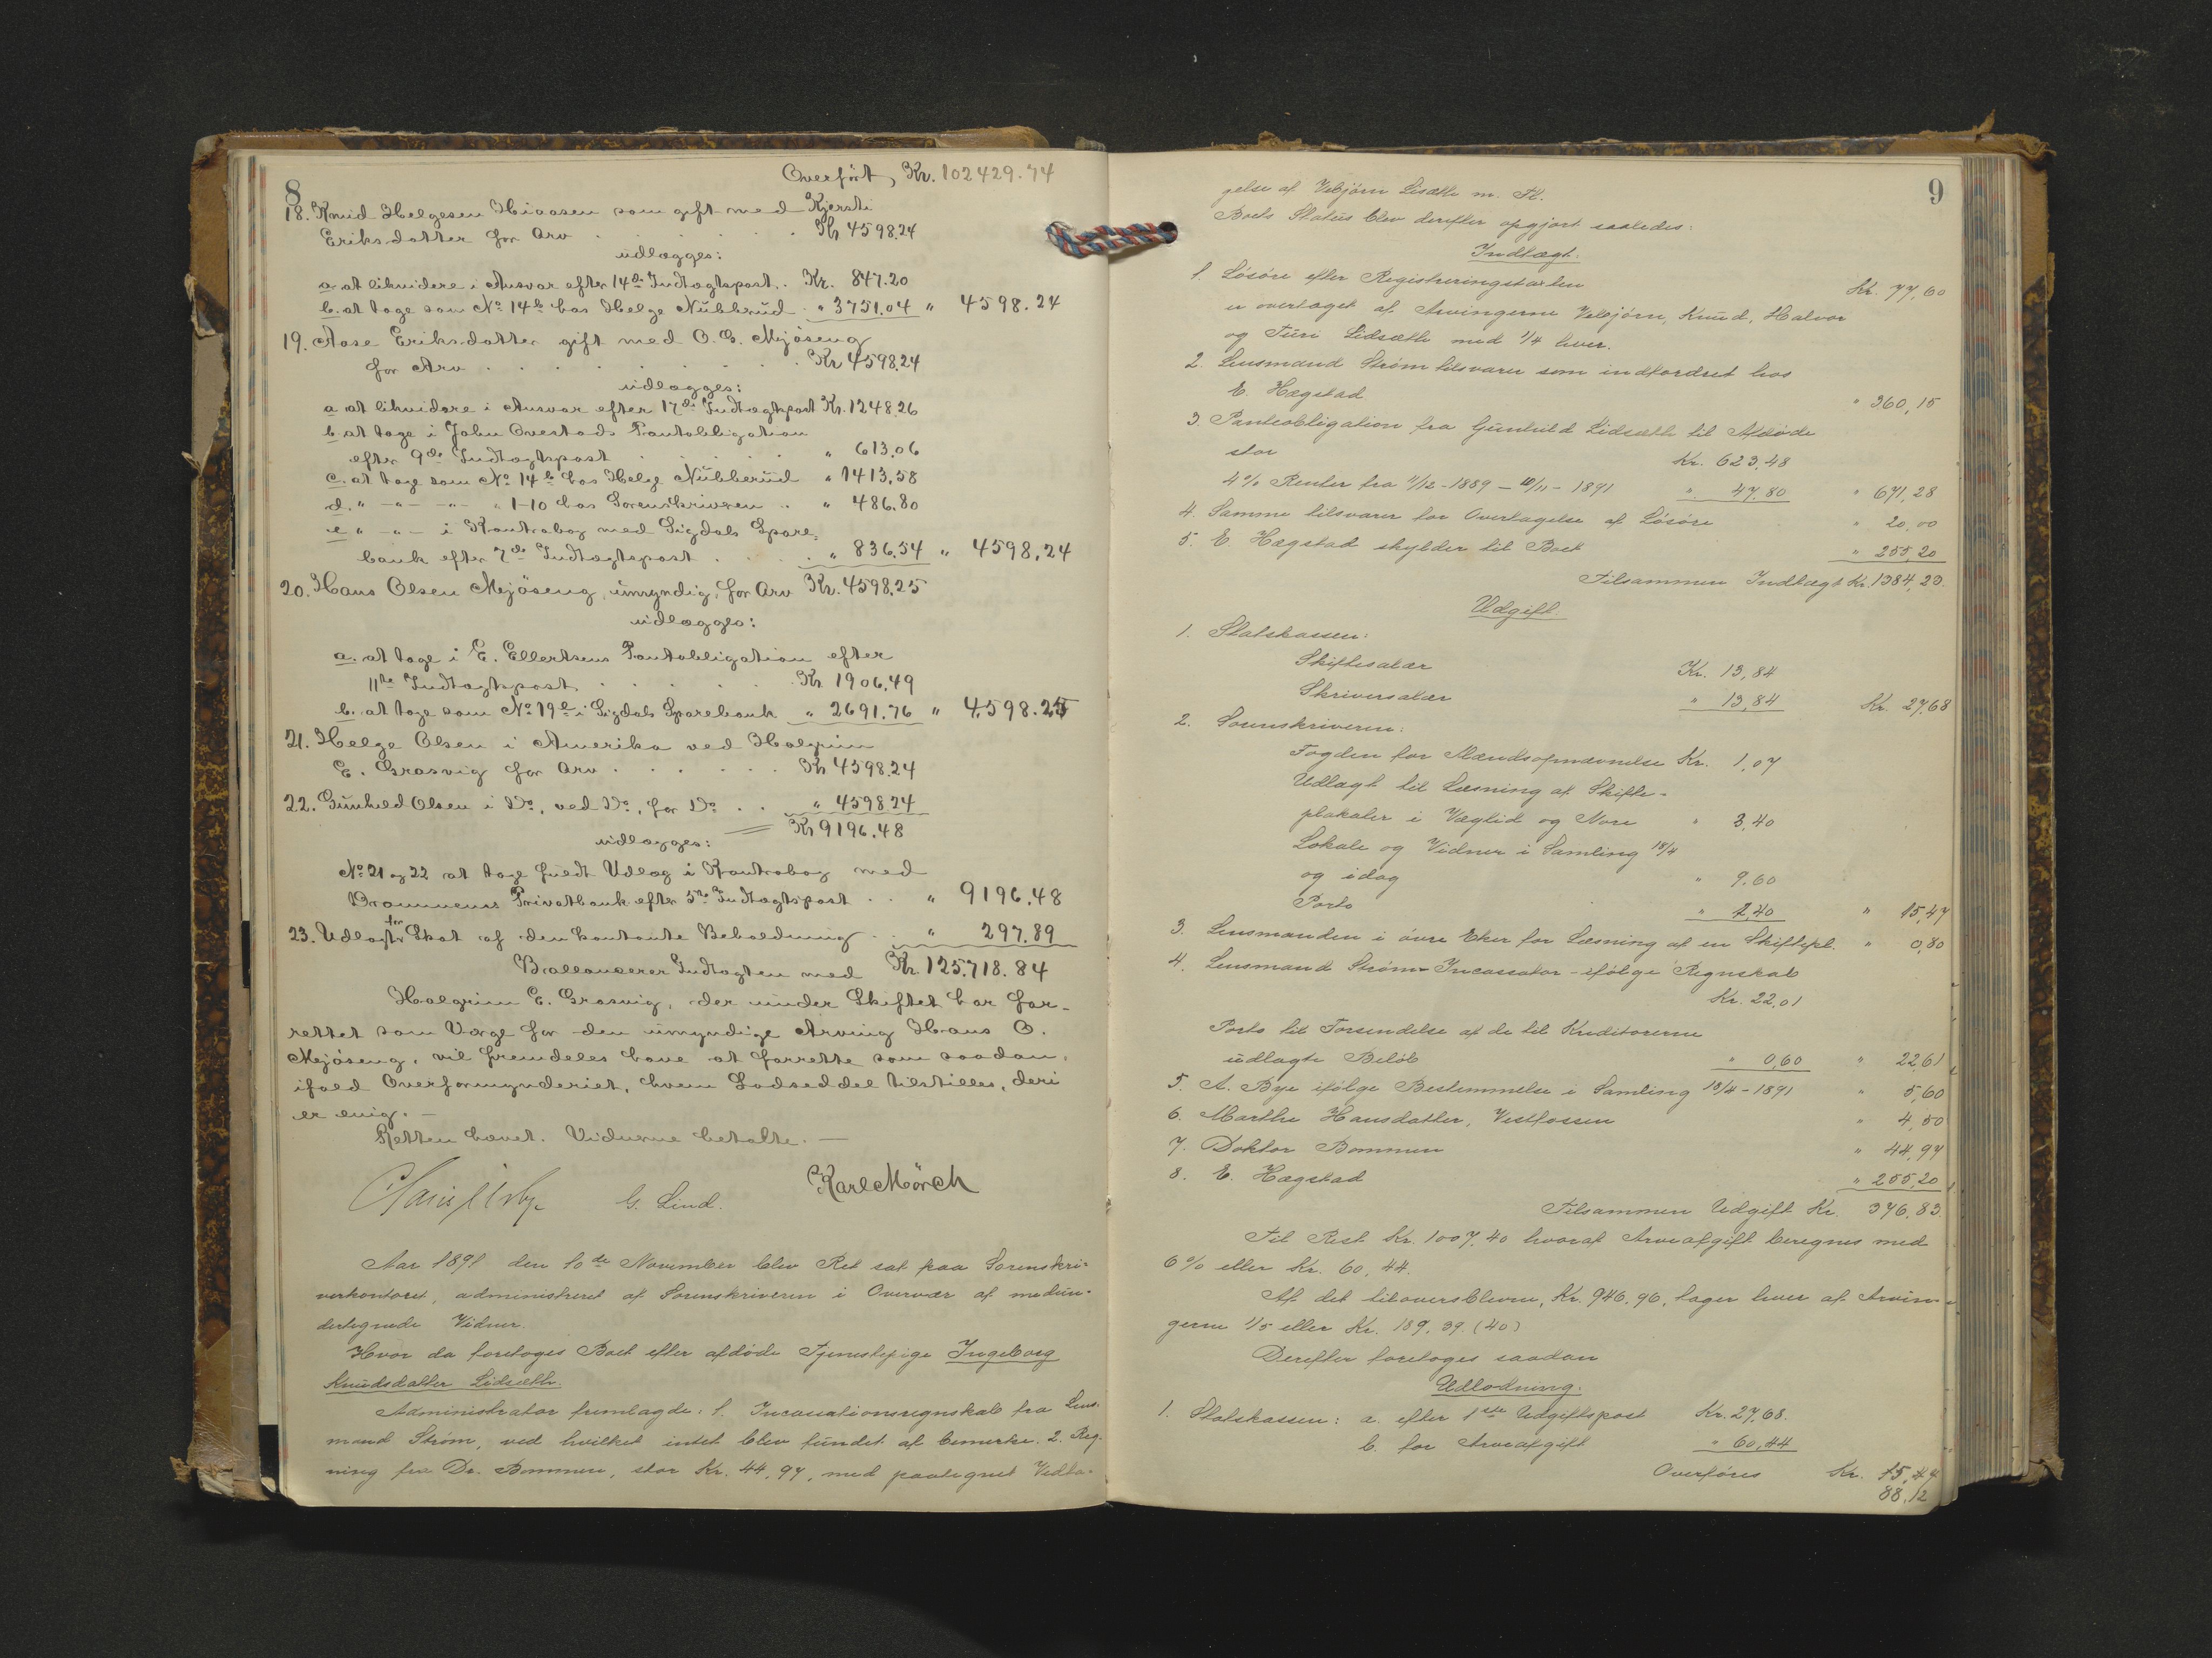 8
Overført, Kr. 102429.74
18. Knud Helgesen Hiaasen som gift med Kjersti
Eriksdatter for Arv . . . . . Kr 4598.24
udlægges:
a. at likvidere i Ansvar efter 14de Indtægtspost. Kr. 847.20
b. at tage som No 14b hos Helge Nubberud . " 3751.04 " 4598.24
19. Aase Eriksdatter gift med O. G. Mejöseng
for Arv . . . . . . . Kr 4598.24
udlægges:
a at likvidere i Ansvar efter 17de Indtægtspost Kr. 1248.26
b at tage i John Overstads Pantobligation
efter 9de Indtægtspost . . . . " 613.06
c. at tage som No 14b hos Helge Nubberud " 1413.58
d. " -"- -"- " 1-10 hos Sorenskriveren .. " 486.80
e " -"- i Kontrabog med Sigdals Spare-
bank efter 7de Indtægtspost . . . " 836.54 " 4598.24
20. Hans Olsen Mejöseng, umyndig, for Arv Kr. 4598.25
udlægges:
a. at tage i E. Ellertsens Pantobligation efter
11te Indtægtspost . . . . . Kr. 1906.49
b. at tage som No 19e i Sigdals Sparebank " 2691.76 " 4598.25
21. Helge Olsen i Amerika ved Halgrim
E. Grasvig for Arv . . . . . . Kr 4598.24
22. Gunhild Olsen i Do, ved Do, for Do . . " 4598.24
Kr 9196.48
udlægges:
No 21 og 22 at tage fuldt Udlæg i Kontrabog med
Drammens Privatbank efter 5te Indtægtspost . . " 9196.48
23. Udlagt for Skat af den kontante Beholdning . . " 297.89
Ballancerer Indtægten med Kr. 125.718.84
Halgrim E. Grasvig, der under Skiftet har for-
rettet som Værge for den umyndige Arving Hans O.
Mejöseng, vil fremdeles have at forrette som saadan,
ifald Overformynderiet, hvem Lodseddel tilstilles, deri
er enig. —
Retten hævet. Vidnerne betalte. —
G. Lind.
Karl Mörch
Aar 1891 den 10de November blev Ret sat paa Sorenskri-
verkontoret, administreret af Sorenskriveren i Overvær af medun-
dertegnede Vidner.
Hvor da foretoges Boet efter afdöde Tjenestepige Ingeborg
Knudsdatter Lidsæth.
Administrator fremlagde: 1. Incassationsregnskab fra Lens-
mand Strøm, ved hvilket intet blev fundet at bemerke. 2. Reg-
ning fra Dr. Bommen, stor Kr. 44,97, med paategnet Vedta-
9
gelse af Vebjörn Lisæth m. Fl.
Boets Status blev derefter opgjort saaledes:
Indtægt.
1. Lösöre efter Registreringstaxten Kr. 77,60
er overtaget af Arvingerne Vebjörn, Knud, Halvor
og Turi Lidsæth med 1/4 hver.
2. Lensmand Strøm tilsvarer som indfordret hos
E. Hægstad " 360,15
3. Panteobligation fra Gunhild Lidsæth til Afdøde
stor Kr. 623,48
4% Renter fra 11/12-1889 - 10/11-1891 " 47,80 " 671,28
4. Samme tilsvarer for Overtagelse af Lösöre " 20,00
5. E Hægstad skylder til Boet " 255,20
Tilsammen Indtægt Kr. 1384,23.
Udgift.
1. Statskassen:
Skiftesalær Kr. 13,84
Skriversalær " 13,84 Kr. 27,68
2. Sorenskriveren:
Fogden for Mændsopnævnelse Kr. 1,07
Udlagt til Læsning af Skifte-
plakater i Væglid og Nore " 3,40
Lokale og Vidner i Samling 18/4
og idag " 9,60
Porto " 1,40 " 15,47
3. Lensmanden i övre Eker for Læsning af en Skiftepl. " 0,80
4. Lensmand Strøm - Incassator - ifölge Regnskab
Kr. 22,01
Porto til Forsendelse af de til Kreditorerne
udlagte Belöb " 0,60 " 22,61
5. A. Bye ifölge Bestemmelse i Samling 18/4-1891 " 5,60
6. Marthe Hansdatter, Vestfossen " 4,50
7. Doktor Bommen " 44,97
8. E. Hægstad " 255,20
Tilsammen Udgift Kr. 376,83.
Til Rest Kr. 1007,40 hvoraf Arveafgift beregnes med
6% eller Kr. 60,44.
Af det tiloversblevne, Kr. 946,96, tager hver af Arvin-
gerne 1/5 eller Kr. 189,39 (40)
Derefter foretoges saadan
Udlodning.
1. Statskassen: a. efter 1ste Udgiftspost Kr. 27,68.
b. for Arveafgift " 60,44
Overföres Kr. 15,47
88,12